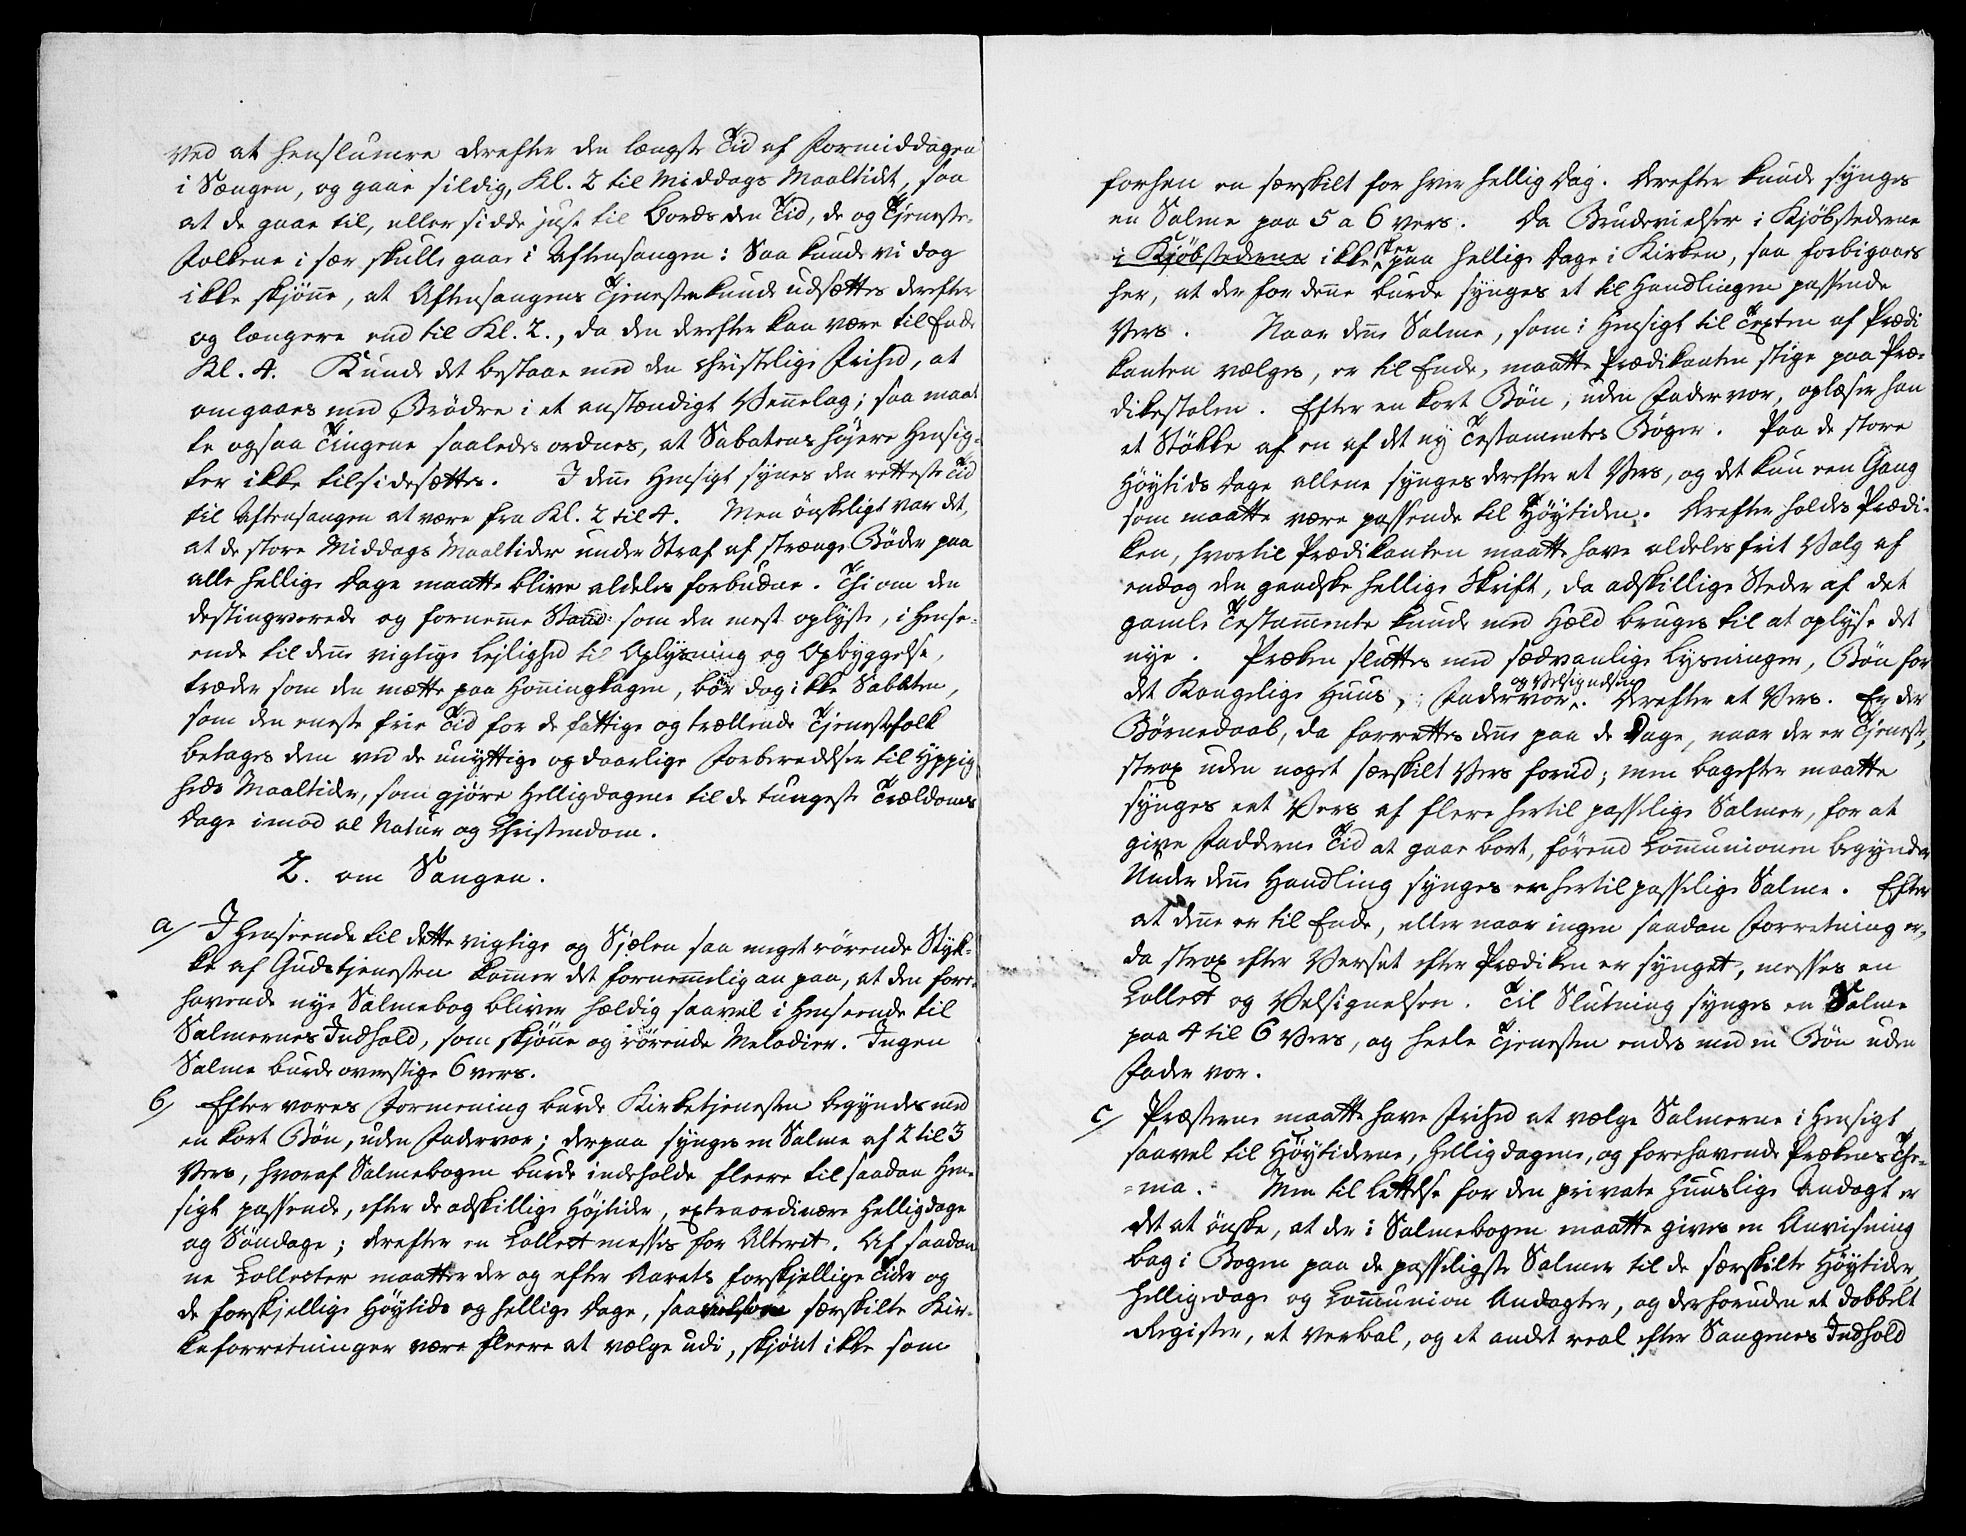 ved at henslumre derefter den længste Tid af Formiddagen
i Sængen, og gaae sildig, Kl. 2 til Middags Maaltidet, saa
at de gaae til, eller sidde just til Bords den Tid, de og Tjeneste-
Folkene i sær skulle gaae i Aftensangen: Saa kunde vi dog
ikke skjønne, at Aftensangens Tjeneste kunde udsættes derefter
og længere end til Kl. 2., da den derefter kan være til Ende
Kl. 4. Kunde det bestaae med den christelige Frihed, at
omgaaes med Brødre i et anstændigt Vennelag; saa maat
te ogsaa Tingene saaledes ordnes, at Sabatens høiere Hensig-
ter ikke tilsidesættes. I denne Hensigt synes den retteste Tid
til Aftensangen at være fra Kl. 2 til 4. Men ønskeligt var det,
at de store Middags Maaltider under Straf af strænge Bøder paa
alle hellige Dage maatte blive aldeles forbudne. Thi om den
destingverede og fornemme Stand som den mest oplyste, i Hense-
ende til denne vigtige Lejlighed til Oplysning og Opbyggelse,
træder som den mætte paa Honningkagen, bør dog ikke Sabbaten,
som den eneste frie Tid for de fattige og trællende Tjenestefolk
betages dem ved de unyttige og daarlige Forberedelser til Yppig
heds Maaltider, som gjøre Helligdagene til de tungeste Trældoms
Dage imod al Natur og Christendom.
2. om Sangen.
a/ I Henseende til dette vigtige og Sjælen saa meget rørende Styk-
ke af Gudstjenesten kommer det fornemmelig an paa, at den fore-
havende nye Salmebog bliver heldig saavel i Henseende til
Salmernes Indhold, som skjønne og rørende Melodier. Ingen
Salme burde overstige 6 vers.
b/ Efter vores Formening burde Kirketjenesten begyndes med
en kort Bøn, uden Fadervor; derpaa synges en Salme af 2 til 3
Vers, hvoraf Salmebogen burde indeholde fleere til saadan Hen-
sigt passende, efter de adskillige Højtider, extraordinære Helligdage
og Søndage; derefter en Collect messes for Alteret. Af saadan
ne Collecter maatte der og efter Aarets forskjellige Tider og
de forskjellige Høytids og hellige Dage, saavelsom særskilte Kir-
keforretninger være fleere at vælge udi, skjønt ikke som
forhen en særskilt for hver hellig Dag. Derefter kunde synges
en Salme paa 5 a 6 vers. Da Brudevielser i Kjøbstederne
i Kjøbstederne ikke skee paa hellige Dage i Kirken, saa forbigaaes
her, at der for denne burde synges et til Handlingen passende
Vers. Naar denne Salme, som i Hensigt til Texten af Prædi
kanten vælges, er til Ende, maatte Prædikanten stige paa Præ-
dikestolen. Efter en kort Bøn, uden Fader vor, oplæser han
et Støkke af en af det ny Testamentes Bøger. Paa de store
Høytids Dage allene synges derefter et Vers, og det kun een Gang
som maatte være passende til Høytiden. Derefter holdes Prædi-
ken, hvortil Prædikanten maatte have aldeles frit Valg af
endog den gandske hellige Skrift, da adskillige Steder af det
gamle Testamente kunde med Held bruges til at oplyse det
nye. Præken sluttes med sædvanlige Lysninger, Bøn for
det Kongelige Huus, Fadervor og Velsignelsen. Derefter et Vers. Er der
Børnedaab, da forrettes denne paa de Dage, naar der er Tjeneste,
strax uden noget særskilt Vers forud; men bagefter maatte
synges eet Vers af flere hertil passelige Salmer, for at
give Fadderne Tid at gaae bort, førend Communionen begynder
Under denne Handling synges en hertil passelige Salme. Efter
at denne er til Ende, eller naar ingen saadan Forretning er,
da strax efter Verset efter Prædiken er synget, messes en
Collect og Velsignelsen. Til Slutning synges en Salme
paa 4 til 6 Vers, og heele Tjenesten endes med en Bøn uden
Fader vor.
c/ Præsterne maatte have Frihed at vælge Salmerne i Hensigt
saavel til Høytiderne, Helligdagene, og forehavende Prækenes The-
=ma. Men til Lettelse for den private huuslige Andagt er
det at ønske, at der i Salmebogen maatte gives en Anvisning
bag i Bogen paa de passeligste Salmer til de særskilte Høytider
Helligedage og Communion Andagter, og derforuden et dobbelt
Register, et verbal, og et andet real efter Sangenes Indhold